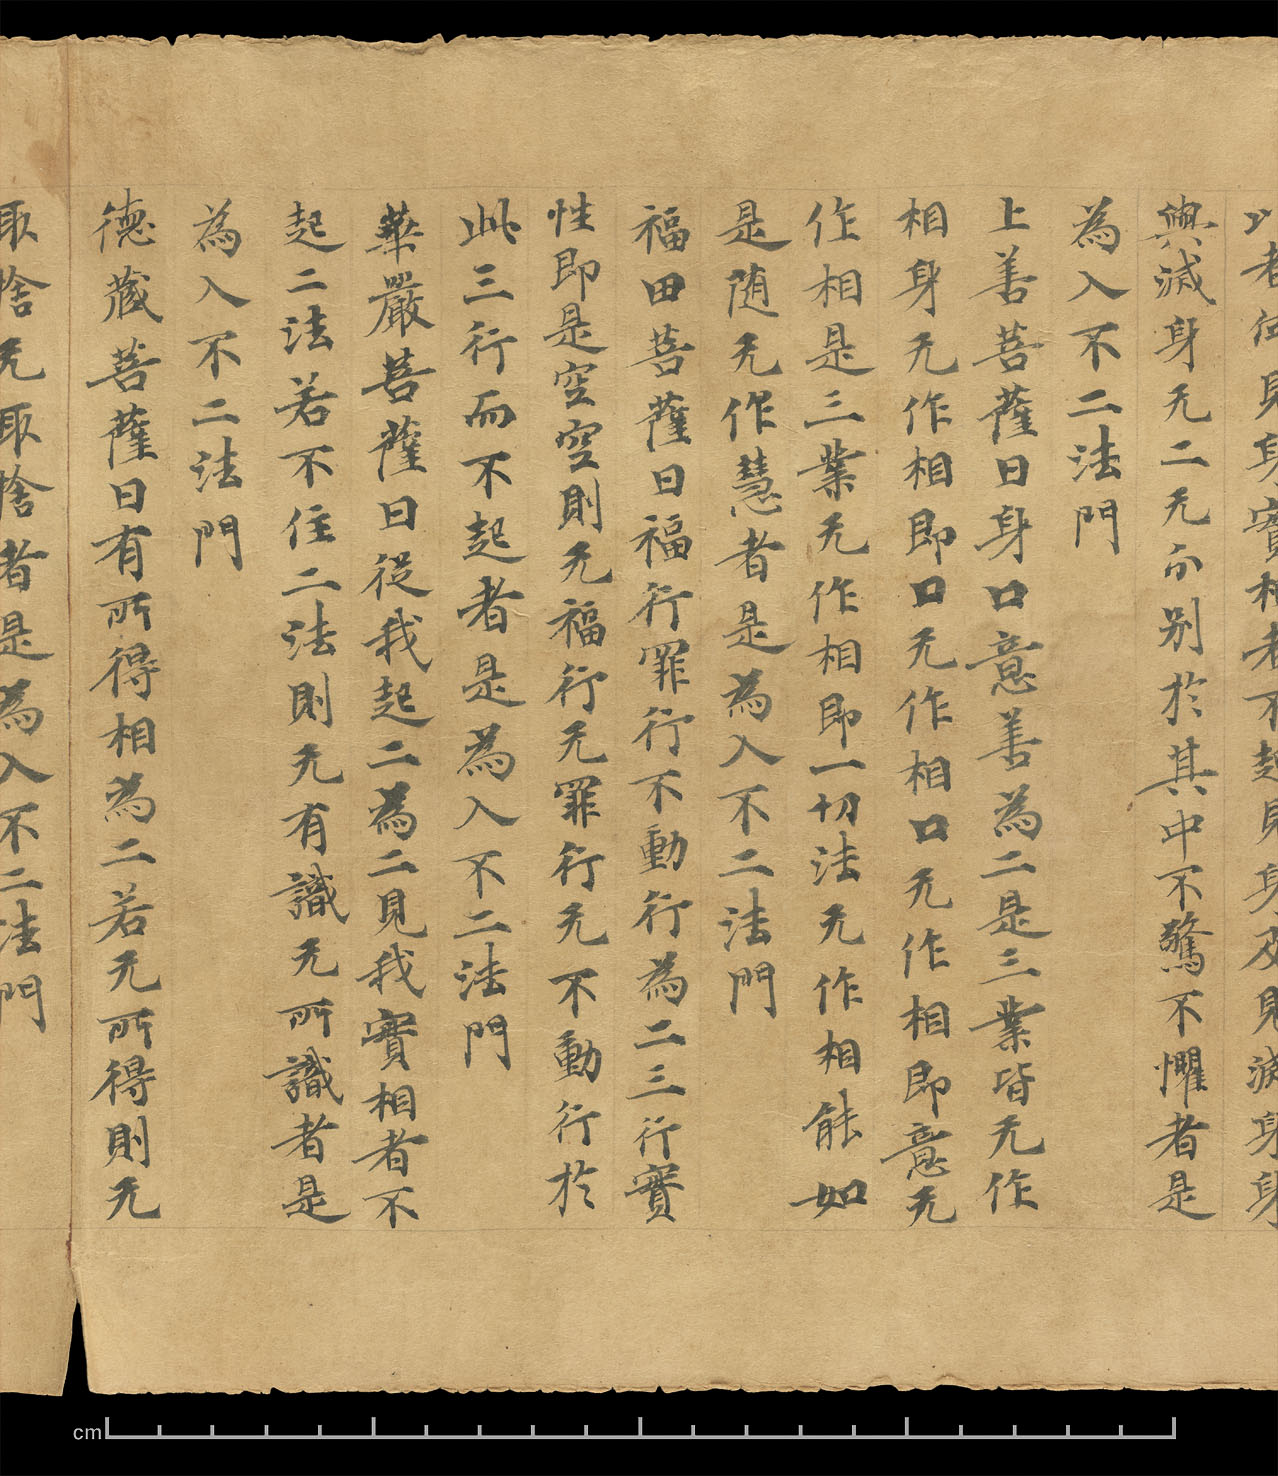 以者何見身實相者不起見身及見滅身身
與滅身无二无分別於其中不驚不懼者是
為入不二法門
上善菩薩曰身口意善為二是三業皆无作
相身无作相即口无作相口无作相即意无
作相是三業无作相即一切法无作相能如
是随无作慧者是為入不二法門
福田菩薩曰福行罪行不動行為二三行實
性即是空空則无福行无罪行无不動行於
此三行而不起者是為入不二法門
華嚴菩薩曰從我起二為二見我實相者不
起二法若不住二法則无有識无所識者是
為入不二法門
德藏菩薩曰有所得相為二若无所得則无
取捨无取捨者是為入不二法門
cm